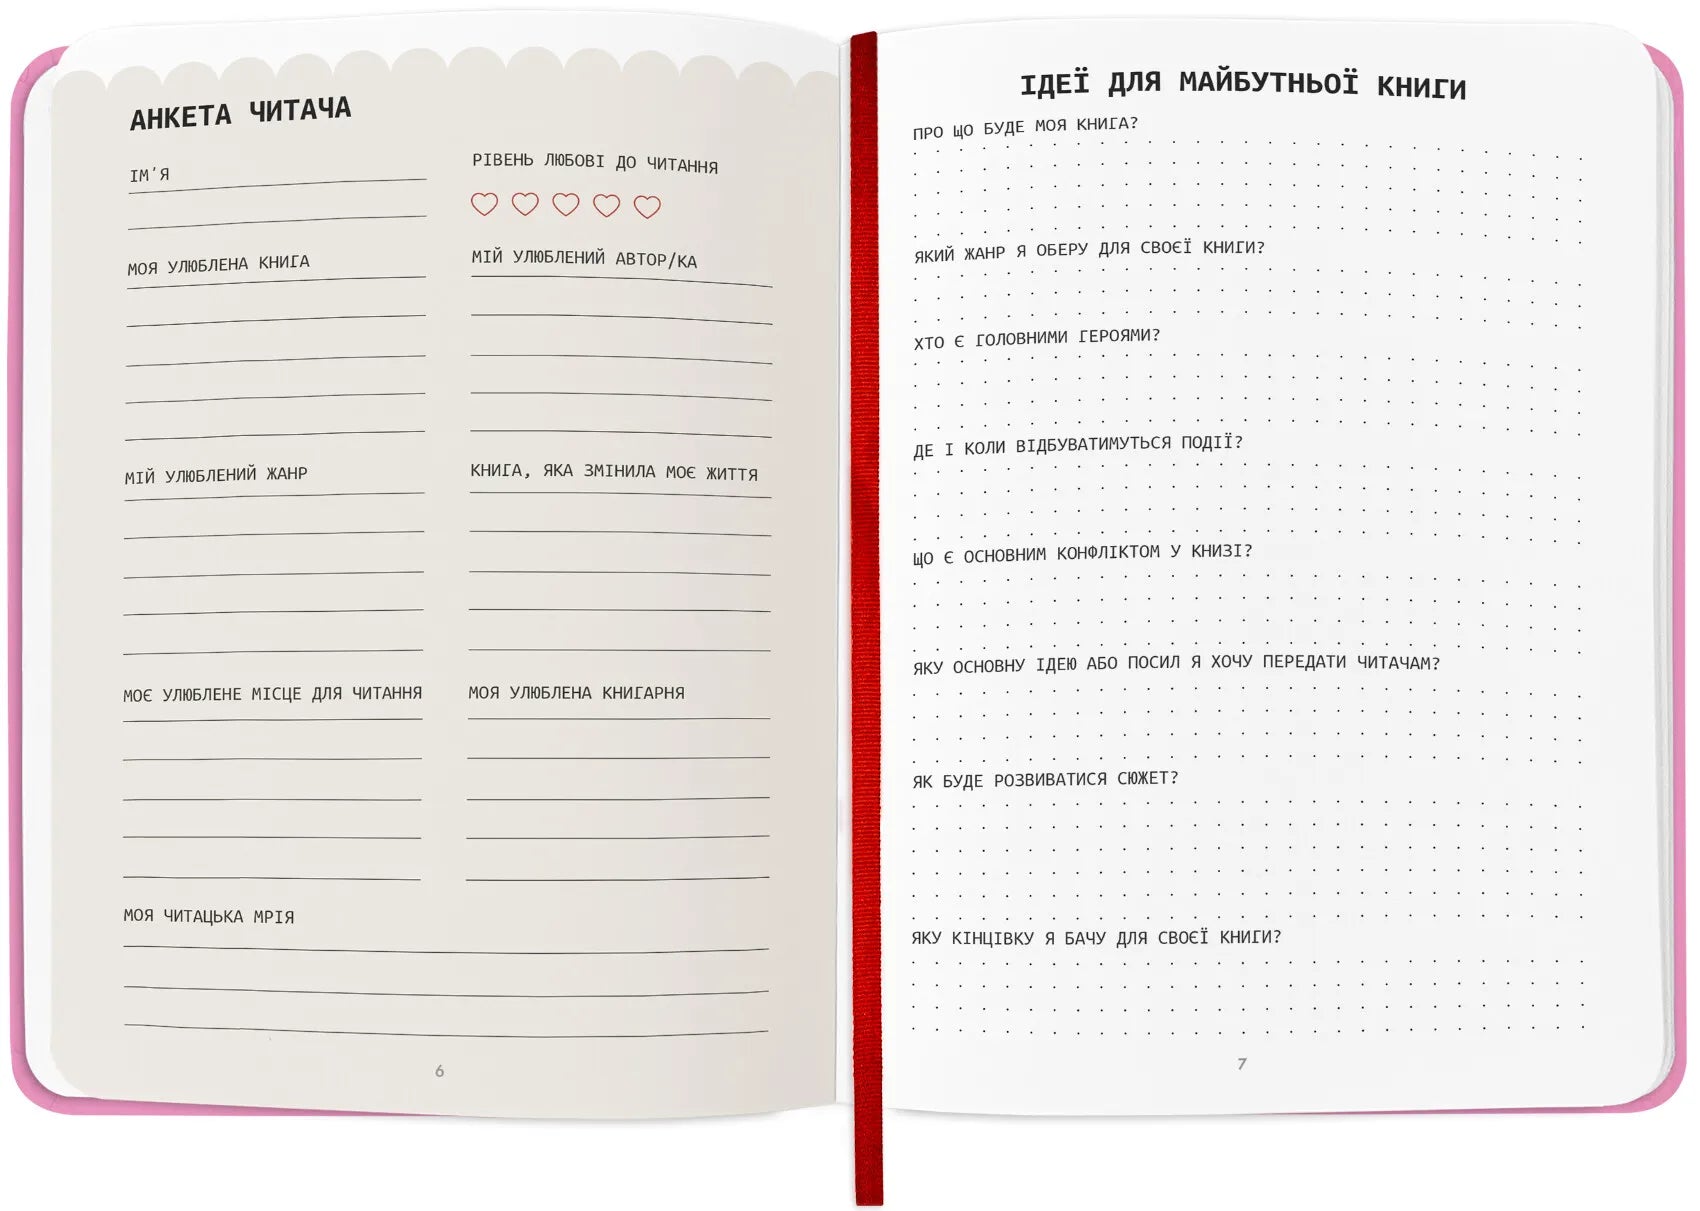 АНКЕТА ЧИТАЧА
ІМ'Я
РІВЕНЬ ЛЮБОВІ ДО ЧИТАННЯ
МОЯ УЛЮБЛЕНА КНИГА
МІЙ УЛЮБЛЕНИЙ АВТОР/КА
МІЙ УЛЮБЛЕНИЙ ЖАНР
КНИГА, ЯКА ЗМІНИЛА МОЄ ЖИТТЯ
МОЄ УЛЮБЛЕНЕ МІСЦЕ ДЛЯ ЧИТАННЯ
МОЯ УЛЮБЛЕНА КНИГАРНЯ
МОЯ ЧИТАЦЬКА МРІЯ
6
ІДЕЇ ДЛЯ МАЙБУТНЬОЇ КНИГИ
ПРО ЩО БУДЕ МОЯ КНИГА?
ЯКИЙ ЖАНР Я ОБЕРУ ДЛЯ СВОЄЇ КНИГИ?
ХТО Є ГОЛОВНИМИ ГЕРОЯМИ?
ДЕ І КОЛИ ВІДБУВАТИМУТЬСЯ ПОДІЇ?
ЩО Є ОСНОВНИМ КОНФЛІКТОМ У КНИЗІ?
ЯКУ ОСНОВНУ ІДЕЮ АБО ПОСИЛ Я ХОЧУ ПЕРЕДАТИ ЧИТАЧАМ?
ЯК БУДЕ РОЗВИВАТИСЯ СЮЖЕТ?
ЯКУ КІНЦІВКУ Я БАЧУ ДЛЯ СВОЄЇ КНИГИ?
7